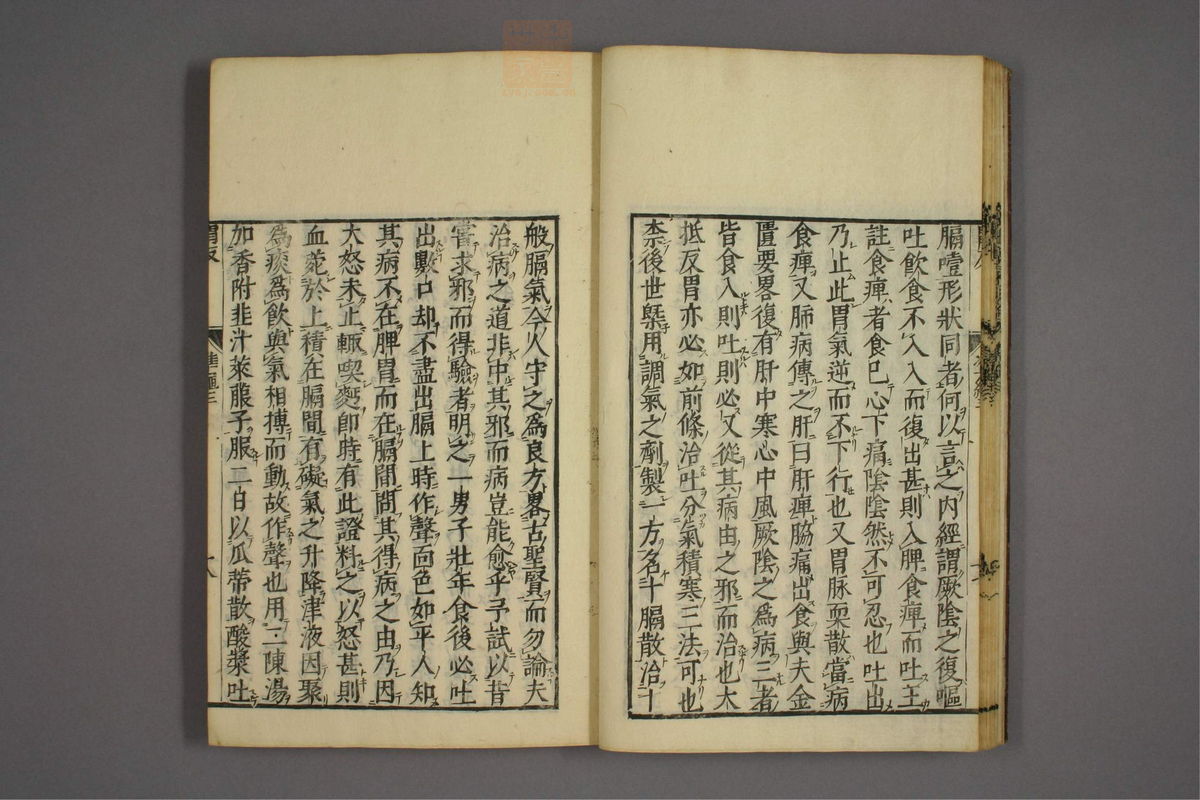 膈噎形狀同者何以言之内經謂厥陰之復嘔
吐飲食不入入而復出甚則入脾食痺而吐王
註食痺者食已心下痛陰陰然不可忍也吐出
乃止此胃氣逆而不下行也又胃脉耎散當病
食痺又肺病傳之肝曰肝痺脇痛出食與夫金
匱要畧復有肝中寒心中風厥陰之爲病三者
皆食入則吐則必又從其病由之邪而治也大
抵反胃亦必如前條治吐分氣積寒三法可也
柰後世槩用調氣之劑製一方名十膈散治十
般膈氣令人守之爲良方畧古聖賢而勿論夫
治病之道非中其邪而病豈能愈乎予試以昔
嘗求邪而得驗者明之一男子壯年食後必吐
出數口却不盡出膈上時作聲面色如平人知
其病不在脾胃而在膈間問其得病之由乃因
大怒未止輒喫麪即時有此證料之以怒甚則
血菀於上積在膈間有礙氣之升降津液因聚
爲痰爲飲與氣相搏而動故作聲也用二陳湯
加香附韭汁萊菔子服二日以瓜蒂散酸漿吐
胃反